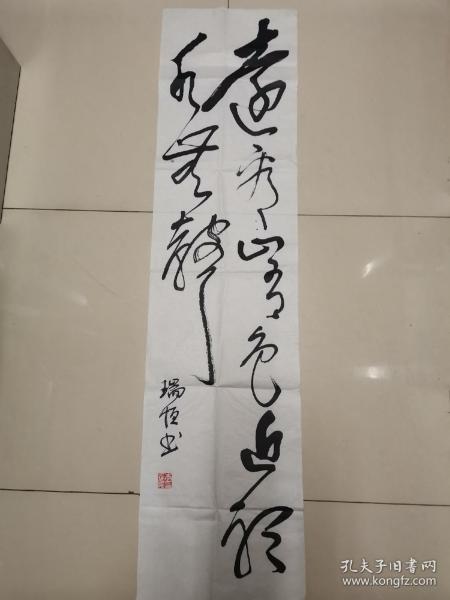 遠看山有色近聽
水無聲
瑞恒书
孔夫子旧书网
www.kongfz.com